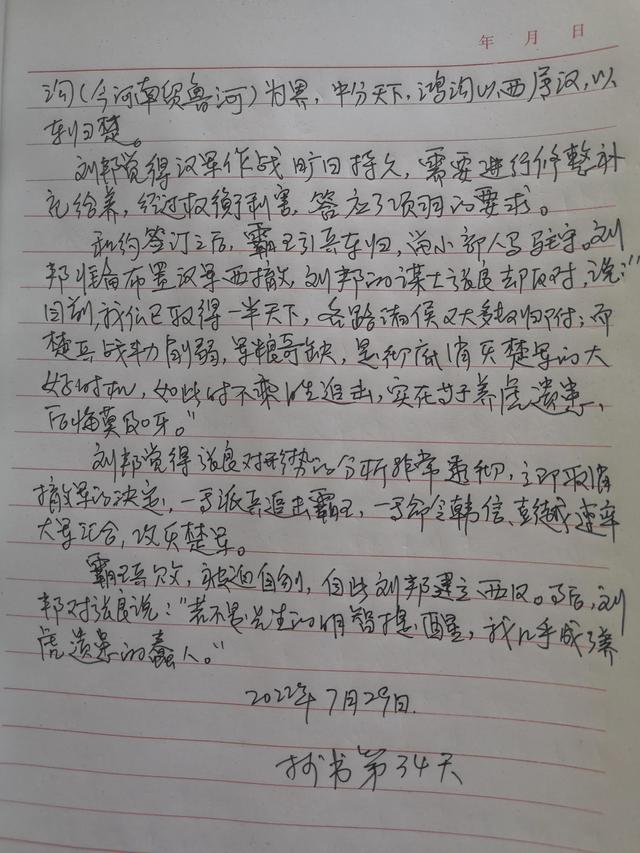 年 月 日
沟(今河南贾鲁河)为界,中分天下,鸿沟以西属汉,以
东归楚。
刘邦觉得汉军作战旷日持久,需要进行修整补
充给养,经过权衡利害,答应了项羽的要求。
和约签订之后,霸王引兵东归,留小部人马驻守。刘
邦准备布置汉军西撤,刘邦的谋士张良却反对,说:“
目前,我们已取得一半天下,各路诸侯又大多数归附;而
楚兵战斗力削弱,军粮奇缺,是彻底消灭楚军的大
好时机,如此时不乘胜追击,实在等于养虎遗患,
后悔莫及呀。”
刘邦觉得张良对形势的分析非常透彻,立即取消
撤军的决定,一马派兵追击霸王,一马命令韩信、彭越速率
大军汇合,攻灭楚军。
霸王兵败,被迫自刎,自此刘邦建立西汉。事后,刘
邦对张良说:“若不是先生的明智提醒,我几乎成了养
虎遗患的蠢人。”
2022年7月29日.
抄书第34天